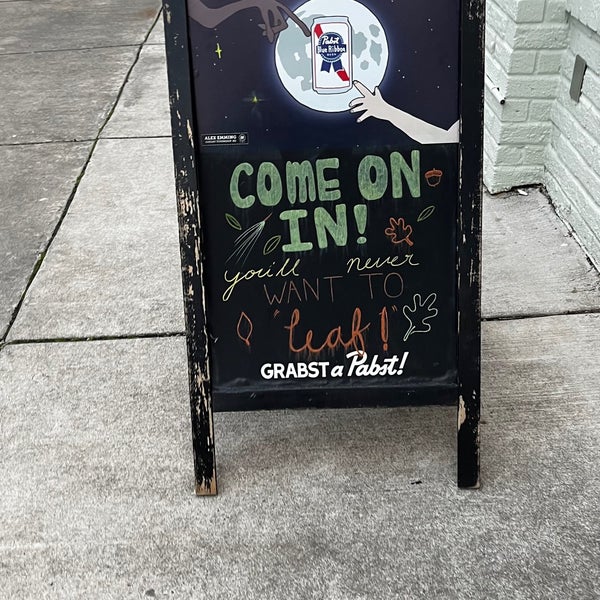 Pabst
Blue Ribbon
BEER
ALEX EMMING
COME ON
IN!
you'll never
WANT TO
"leaf!"
GRABST a Pabst!